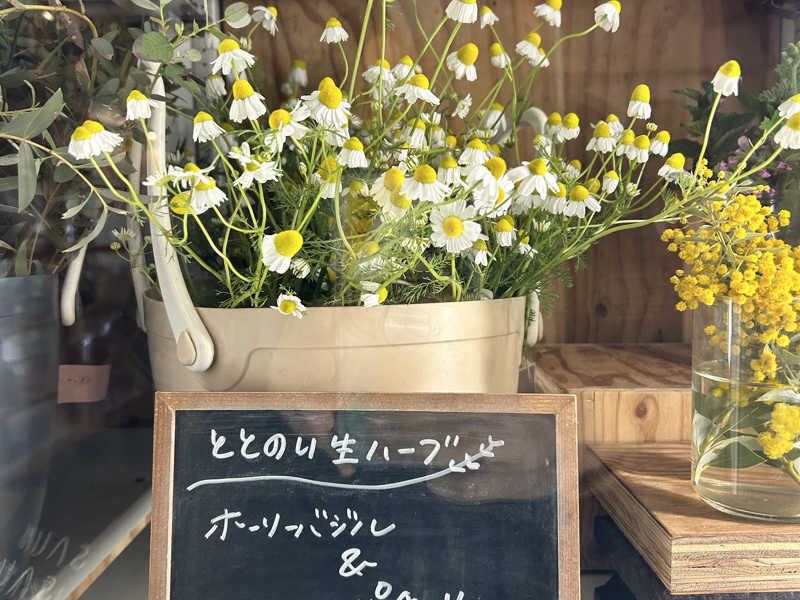 ととのり生ハーブ
ホーリーバジル
&